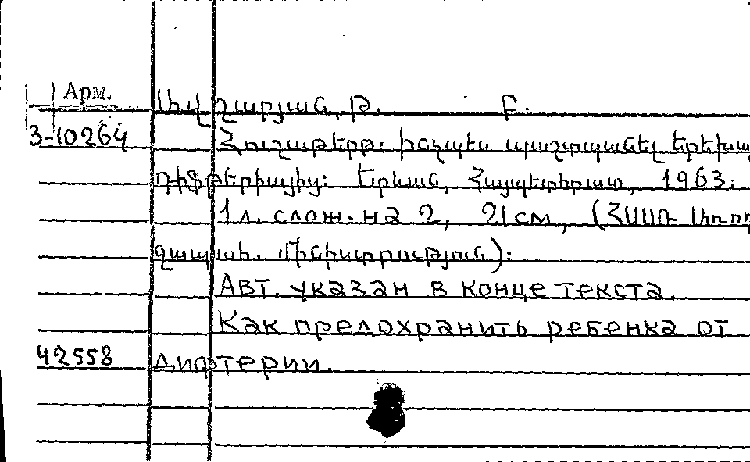 Арм.
3-10264
Հուշաթերթ. ինչպես պաշտպանել երեխայ
դիֆթերիայից: Երևան, Հայպետհրատ, 1963.
1 л. слож. на 2, 21 см, (ՀՍՍՌ Առող
ջապահ. մինիստրություն):
Авт. указан в конце текста.
Как предохранить ребенка от
42558
дифтерии.